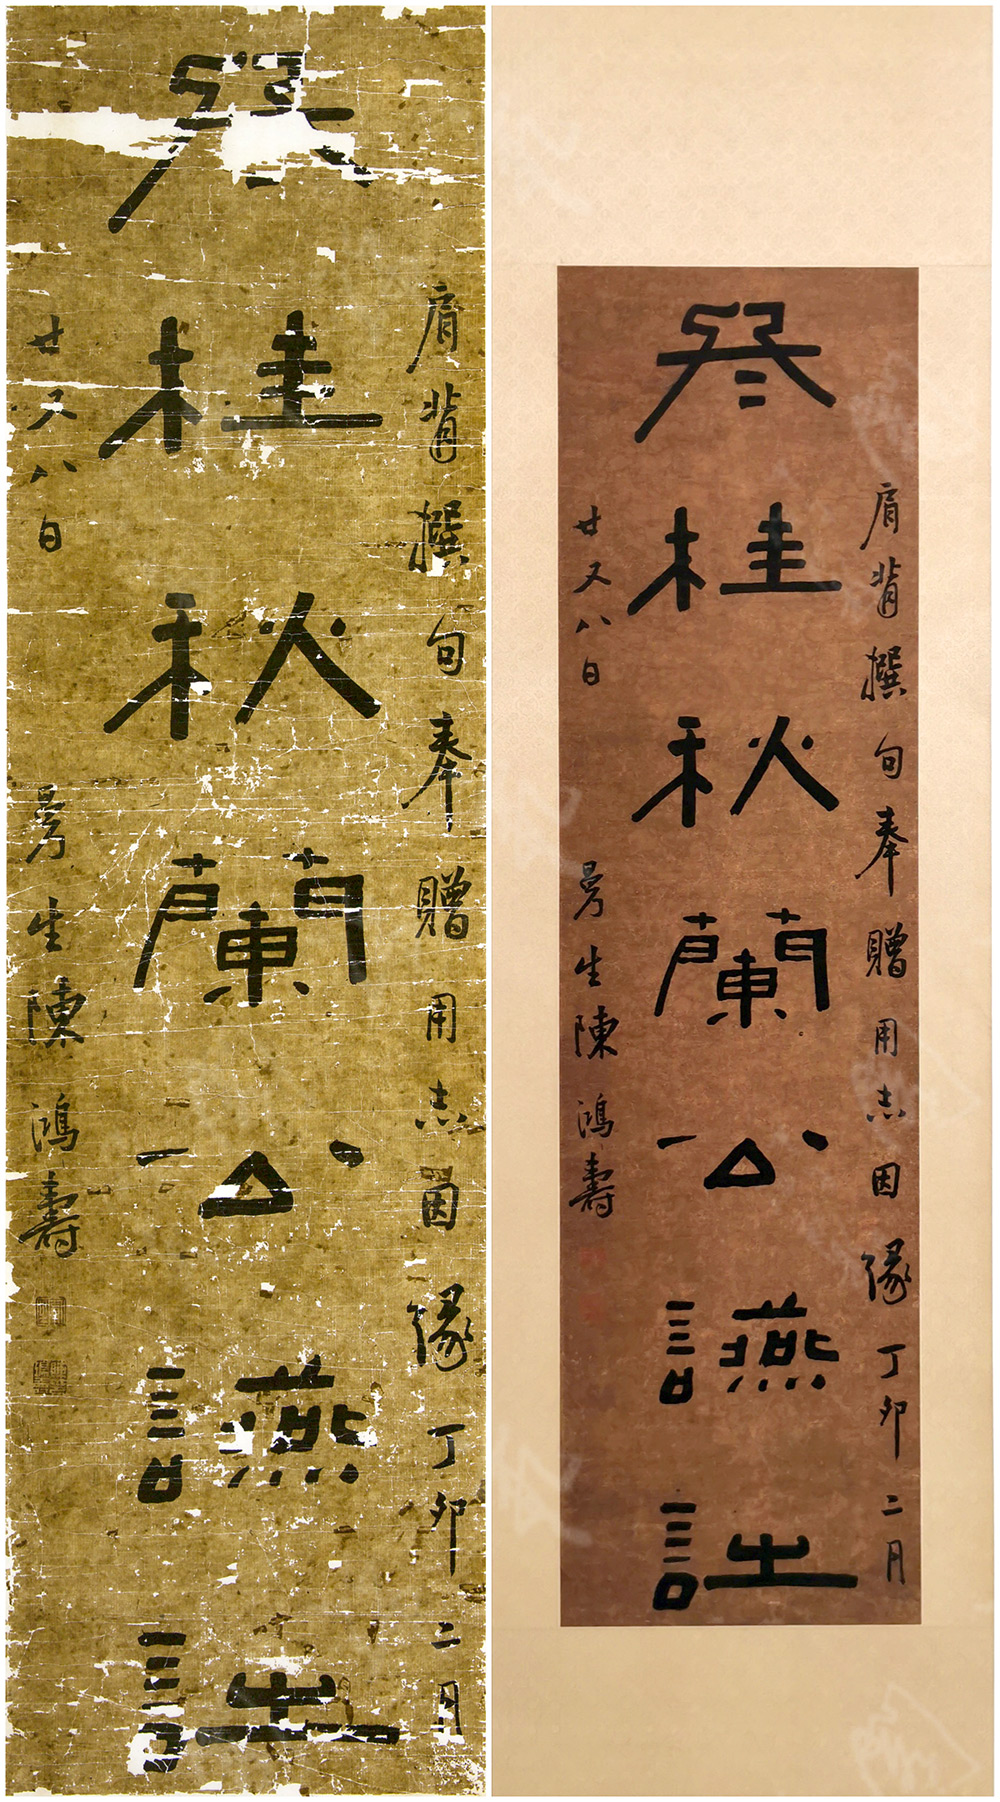 肩撰句奉贈用志因緣丁卯二月
桂秋蘭公讌詩
廿又八日 曼生陳鴻壽
肩撰句奉贈用志因緣丁卯二月
桂秋蘭公讌詩
廿又八日 曼生陳鴻壽